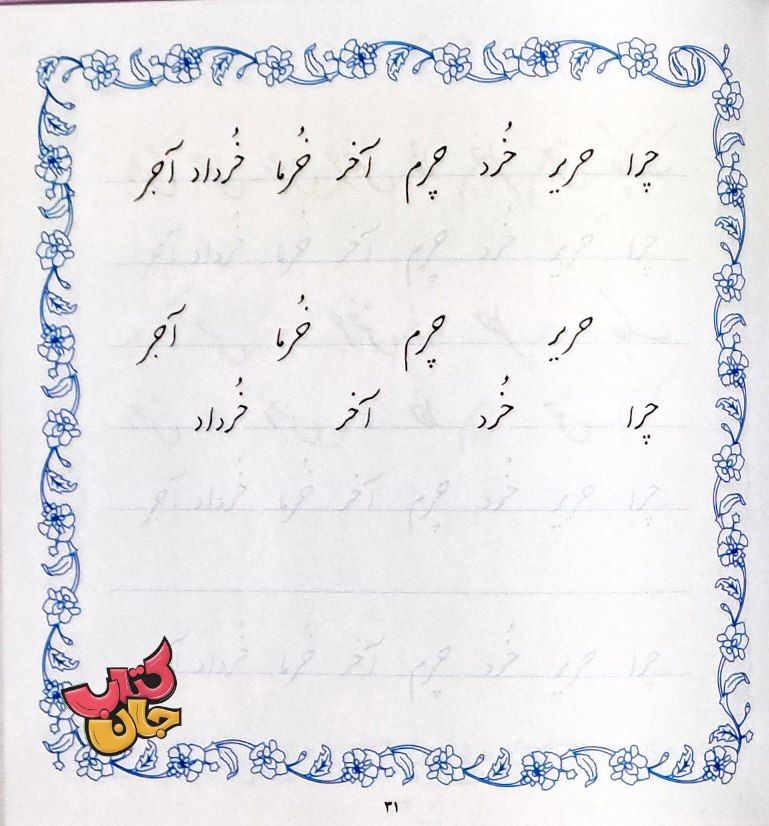 چرا حریر خُرد چرم آخر خُرما خُرداد آجر
چرا حریر خُرد چرم آخر خُرما خُرداد آجر
حریر چرم خُرما آجر
چرا خُرد آخر خُرداد
چرا حریر خُرد چرم آخر خُرما خُرداد آجر
چرا حریر خُرد چرم آخر خُرما خُرداد
کتاب جان
۳۱